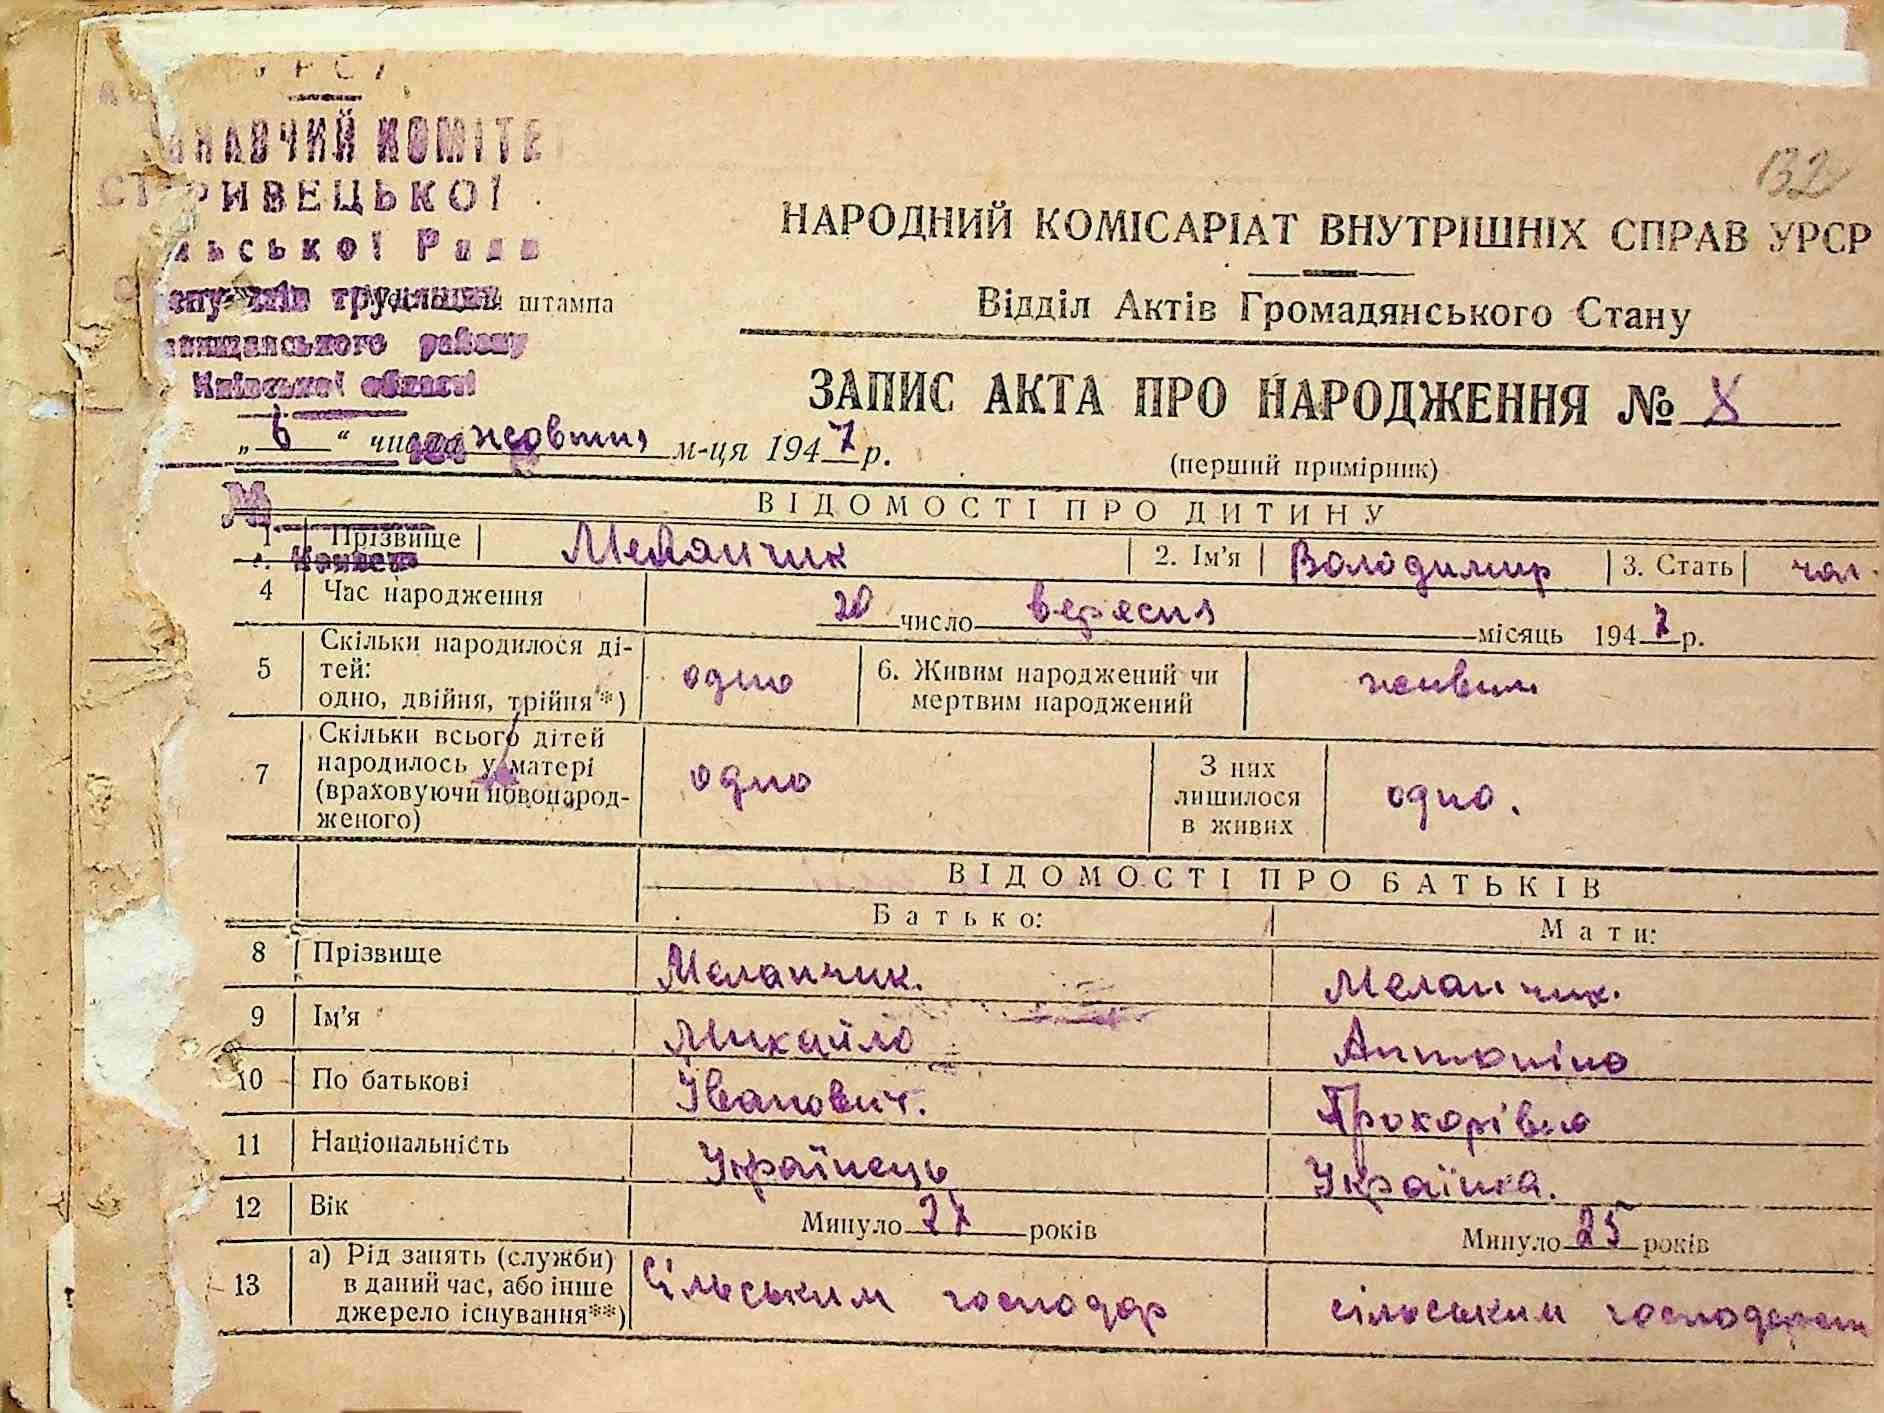 УРСР
НАВЧИЙ КОМІТЕ
РИВЕЦЬКОЇ
льської Рада
трудящих штампа
району
Київської області
132
НАРОДНИЙ КОМІСАРІАТ ВНУТРІШНІХ СПРАВ УРСР
Відділ Актів Громадянського Стану
ЗАПИС АКТА ПРО НАРОДЖЕННЯ №
„6“ числа жовтня м-ця 1947 р.
(перший примірник)
ВІДОМОСТІ ПРО ДИТИНУ
1 Прізвище Меланчик 2. Ім’я Володимир 3. Стать чол.
4 Час народження 20 число вересня місяць 1947 р.
5 Скільки народилося ді-
тей:
одно, двійня, трійня*) одно 6. Живим народжений чи
мертвим народжений живим
7 Скільки всього дітей
народилось у матері
(враховуючи новонарод-
женого) одно З них
лишилося
в живих одно.
ВІДОМОСТІ ПРО БАТЬКІВ
Батько: Мати:
8 Прізвище Меланчик. Меланчик.
9 Ім’я Михайло Антоніна
10 По батькові Іванович. Прохорівна
11 Національність Українець Українка.
12 Вік Минуло років Минуло 25 років
13 а) Рід занять (служби)
в даний час, або інше
джерело існування**) Сільським господар сільським господарст